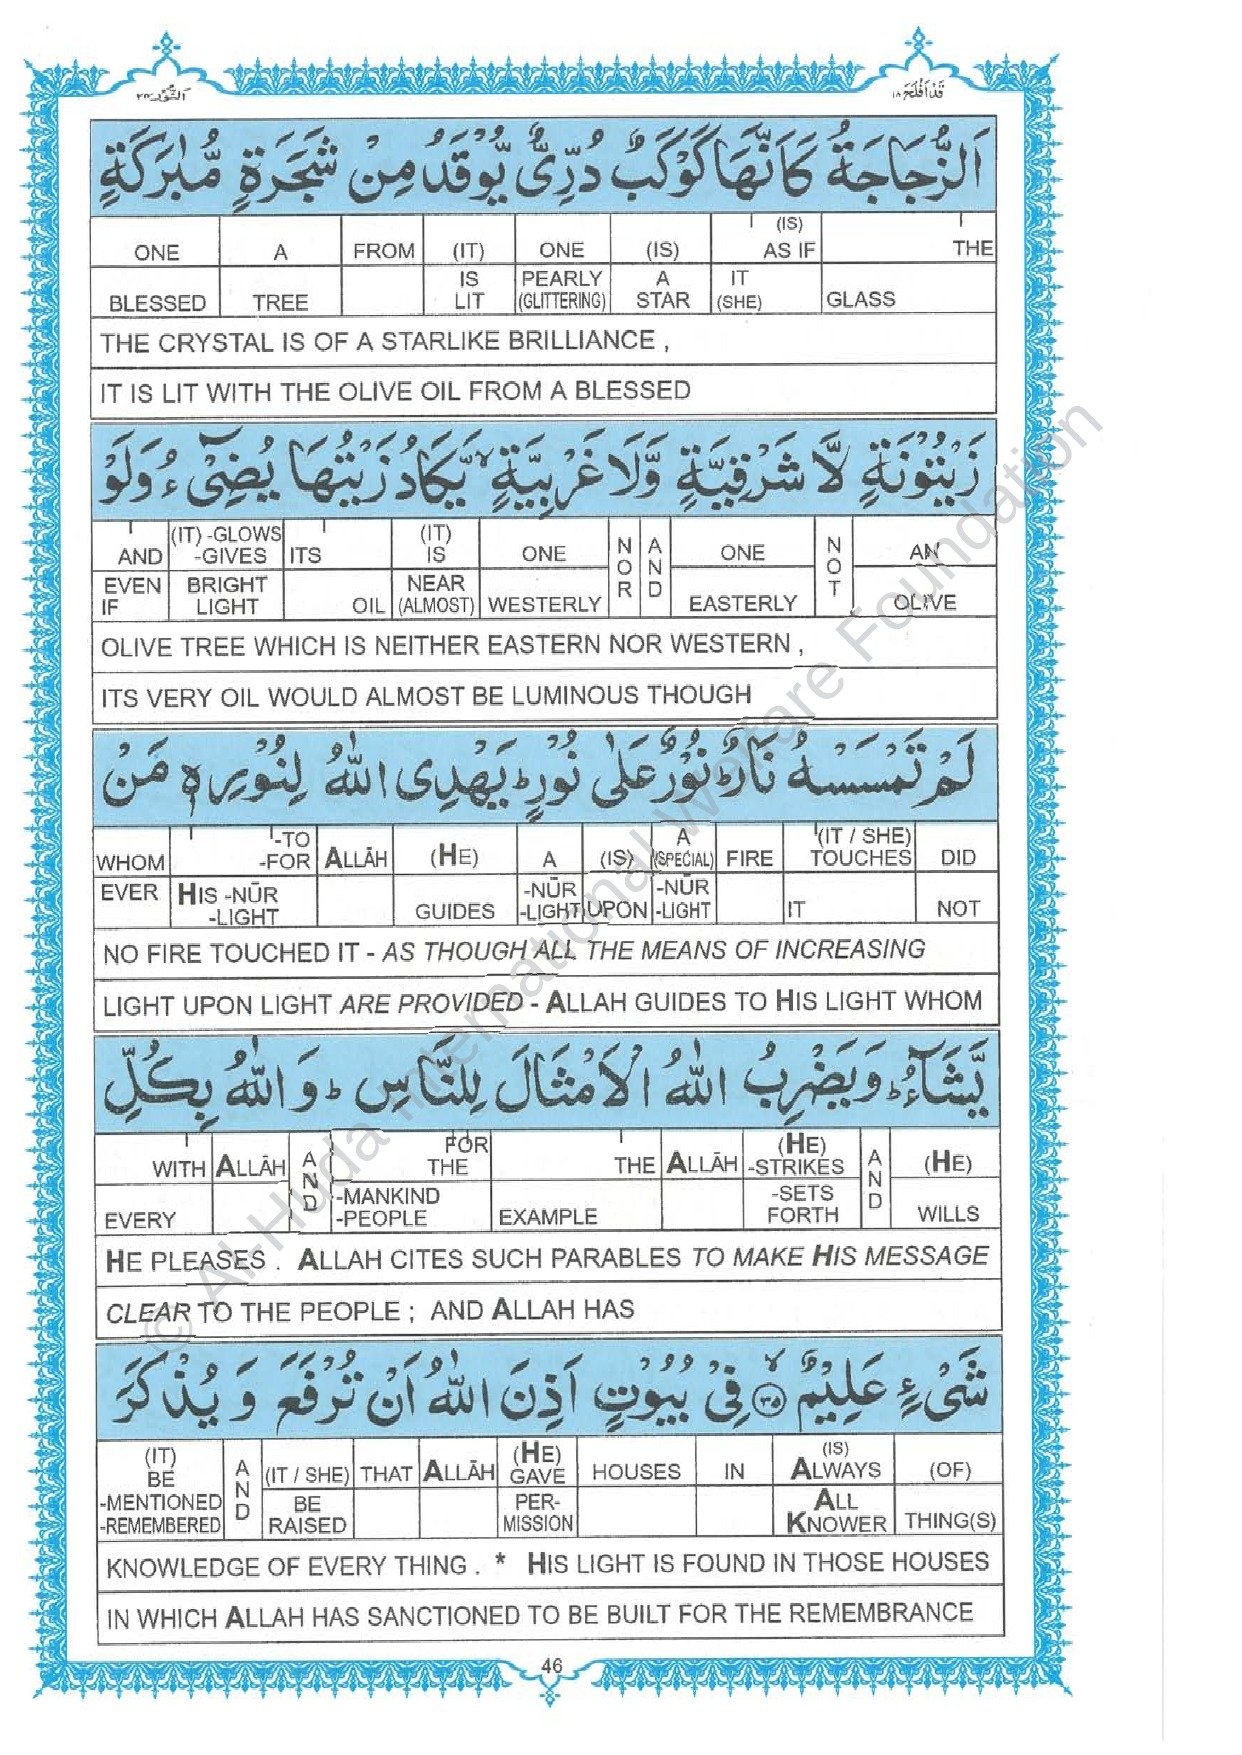 قَدْ اَفْلَحَ ١٨
اَلنُّوْر ٢٥
اَلزُّجَاجَةُ كَاَنَّهَا كَوْكَبٌ دُرِّىٌّ يُّوْقَدُ مِنْ شَجَرَةٍ مُّبٰرَكَةٍ
ONE A FROM (IT) ONE (IS) (IS) AS IF THE
BLESSED TREE IS LIT PEARLY (GLITTERING) A STAR IT (SHE) GLASS
THE CRYSTAL IS OF A STARLIKE BRILLIANCE ,
IT IS LIT WITH THE OLIVE OIL FROM A BLESSED
زَيْتُوْنَةٍ لَّا شَرْقِيَّةٍ وَّلَا غَرْبِيَّةٍ ۙ يَّكَادُ زَيْتُهَا يُضِىْٓءُ وَلَوْ
AND (IT) -GLOWS -GIVES ITS (IT) IS ONE NOR AND ONE NOT AN
EVEN IF BRIGHT LIGHT OIL NEAR (ALMOST) WESTERLY EASTERLY OLIVE
OLIVE TREE WHICH IS NEITHER EASTERN NOR WESTERN ,
ITS VERY OIL WOULD ALMOST BE LUMINOUS THOUGH
لَمْ تَمْسَسْهُ نَارٌ ؕ نُوْرٌ عَلٰى نُوْرٍ ؕ يَهْدِى اللّٰهُ لِنُوْرِهٖ مَنْ
WHOM -TO -FOR ALLĀH (HE) A (IS) A (SPECIAL) FIRE (IT / SHE) TOUCHES DID
EVER HIS -NŪR -LIGHT GUIDES -NŪR -LIGHT UPON -NŪR -LIGHT IT NOT
NO FIRE TOUCHED IT - AS THOUGH ALL THE MEANS OF INCREASING
LIGHT UPON LIGHT ARE PROVIDED - ALLAH GUIDES TO HIS LIGHT WHOM
يَّشَآءُ ؕ وَيَضْرِبُ اللّٰهُ الْاَمْثَالَ لِلنَّاسِ ؕ وَاللّٰهُ بِكُلِّ
WITH ALLĀH AND FOR THE THE ALLĀH (HE) -STRIKES AND (HE)
EVERY -MANKIND -PEOPLE EXAMPLE -SETS FORTH WILLS
HE PLEASES . ALLAH CITES SUCH PARABLES TO MAKE HIS MESSAGE
CLEAR TO THE PEOPLE ; AND ALLAH HAS
شَىْءٍ عَلِيْمٌ ۙ ٣٥ فِىْ بُيُوْتٍ اَذِنَ اللّٰهُ اَنْ تُرْفَعَ وَ يُذْكَرَ
(IT) BE AND (IT / SHE) THAT ALLĀH (HE) GAVE HOUSES IN (IS) ALWAYS (OF)
-MENTIONED -REMEMBERED BE RAISED PER- MISSION ALL KNOWER THING(S)
KNOWLEDGE OF EVERY THING . * HIS LIGHT IS FOUND IN THOSE HOUSES
IN WHICH ALLAH HAS SANCTIONED TO BE BUILT FOR THE REMEMBRANCE
46
© Al-Huda International Welfare Foundation